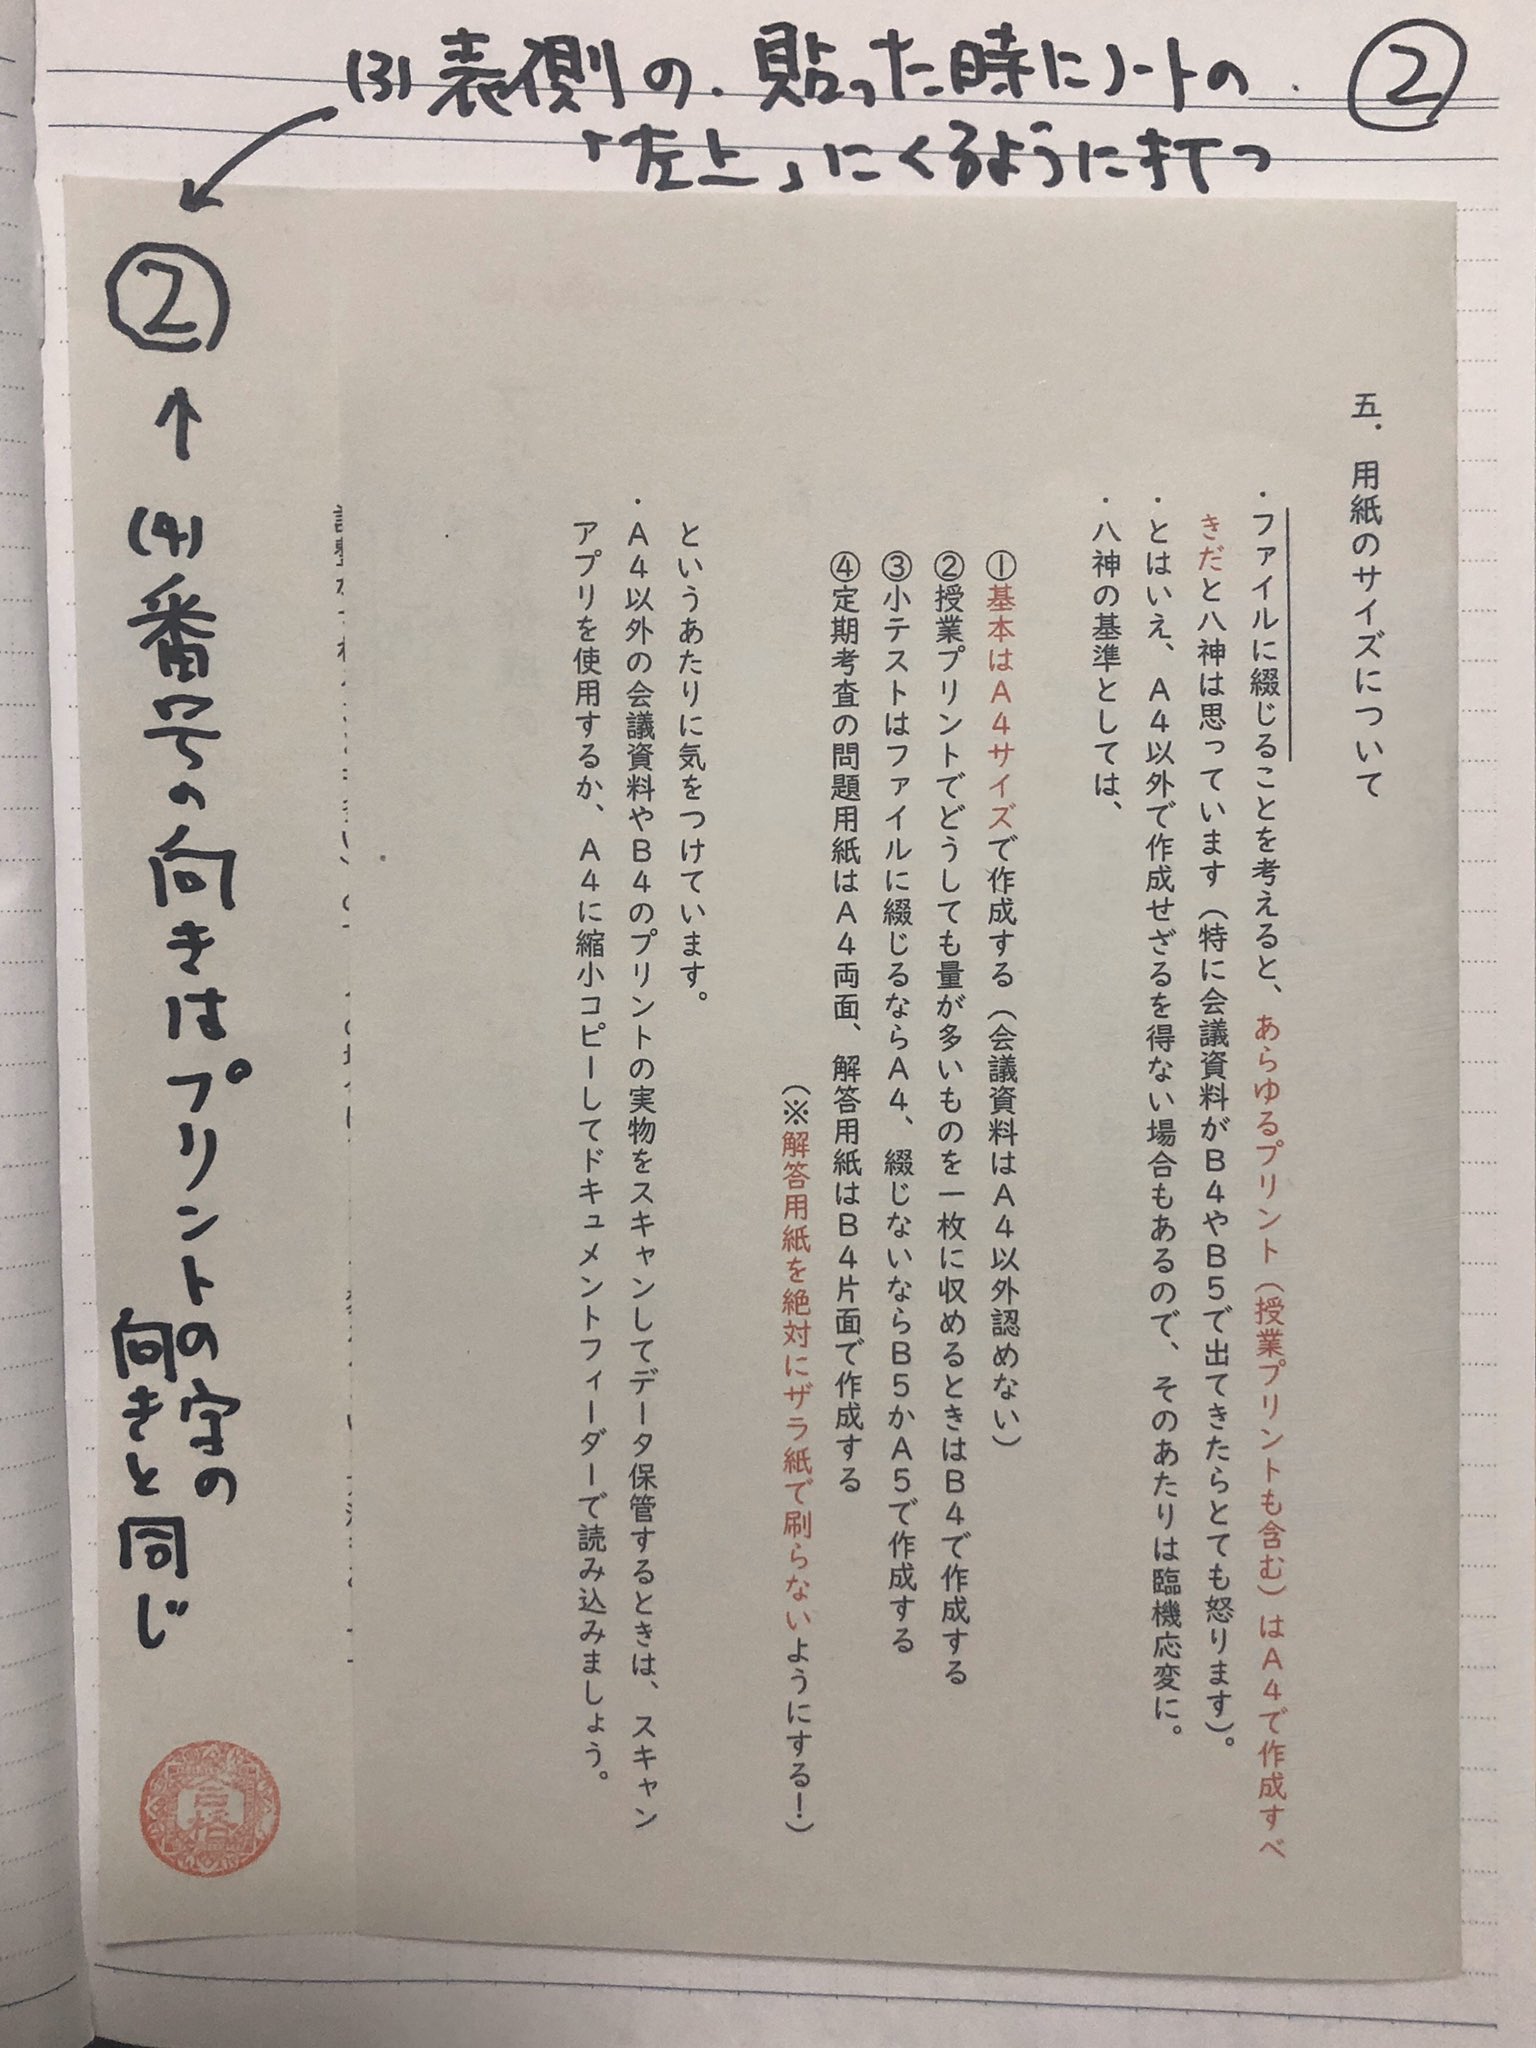 (3) 表側の、貼った時にノートの
「左上」にくるように打つ
②
②
↑
(4) 番号の向きはプリントの字の
向きと同じ
五．用紙のサイズについて
・ファイルに綴じることを考えると、あらゆるプリント（授業プリントも含む）はＡ４で作成すべ
きだと八神は思っています（特に会議資料がＢ４やＢ５で出てきたらとても怒ります）。
・とはいえ、Ａ４以外で作成せざるを得ない場合もあるので、そのあたりは臨機応変に。
・八神の基準としては、
①基本はＡ４サイズで作成する（会議資料はＡ４以外認めない）
②授業プリントでどうしても量が多いものを一枚に収めるときはＢ４で作成する
③小テストはファイルに綴じるならＡ４、綴じないならＢ５かＡ５で作成する
④定期考査の問題用紙はＡ４両面、解答用紙はＢ４片面で作成する
（※解答用紙を絶対にザラ紙で刷らないようにする！）
というあたりに気をつけています。
・Ａ４以外の会議資料やＢ４のプリントの実物をスキャンしてデータ保管するときは、スキャン
アプリを使用するか、Ａ４に縮小コピーしてドキュメントフィーダーで読み込みましょう。
合格